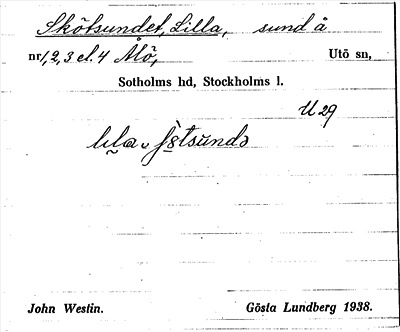 Skötsundet, Lilla, sund å
nr 1, 2, 3 el. 4 Ålö, Utö sn,
Sotholms hd, Stockholms l.
U 29
John Westin. Gösta Lundberg 1938.